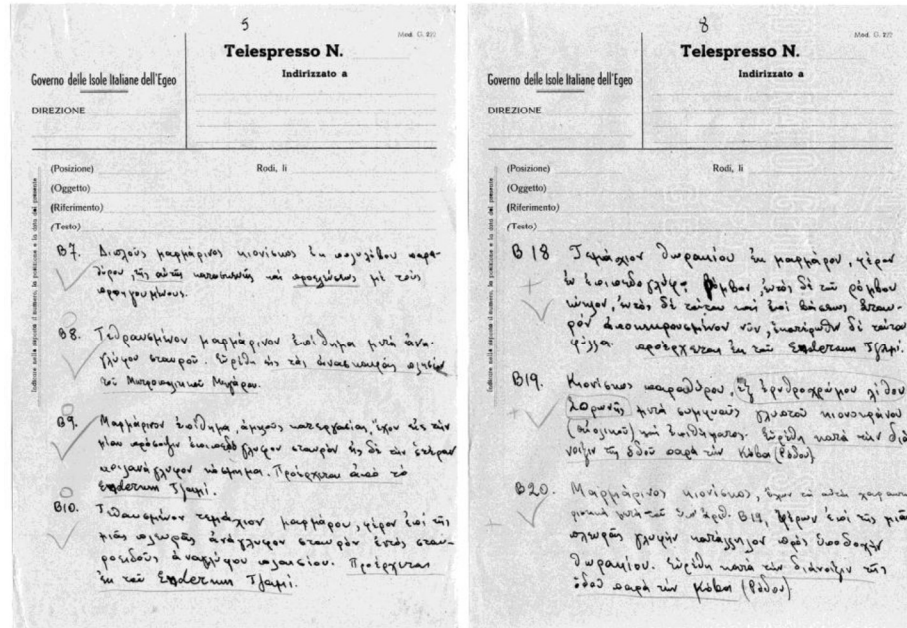 5
Mod. O. 272
Telespresso N.
Indirizzato a
Governo delle Isole Italiane dell'Egeo
DIREZIONE
(Posizione)
Rodi, li
(Oggetto)
(Riferimento)
(Testo)
Indicare nella risposta il numero, la posizione e la data del presente
B7. Διπλοῦς μαρμάρινος κιονίσκος ἐκ πολυλόβου παρα-
θύρου, τῆς αὐτῆς κατασκευῆς καὶ προελεύσεως μὲ τοὺς
προηγουμένους.
B8. Τεθραυσμένον μαρμάρινον ἐπίθημα μετὰ ἀνα-
γλύφου σταυροῦ. Εὑρέθη εἰς τὰς ἀνασκαφὰς πλησίον
τοῦ Μητροπολιτικοῦ Μεγάρου.
B9. Μαρμάρινον ἐπίθημα, ἀμελοῦς κατεργασίας, ἔχον εἰς τὴν
μίαν πρόσοψιν ἐπιπεδόγλυφον σταυρὸν εἰς δὲ τὴν ἑτέραν
κόσμημα. Προέρχεται ἀπὸ τὸ
Enderum Τζαμί.
B10. Τεθραυσμένον τεμάχιον μαρμάρου, φέρον ἐπὶ τῆς
μιᾶς πλευρᾶς ἀνάγλυφον σταυρὸν ἐντὸς σταυ-
ροειδοῦς ἀναγλύφου πλαισίου. Προέρχεται
ἐκ τοῦ Enderum Τζαμί.
8
Mod. O. 272
Telespresso N.
Indirizzato a
Governo delle Isole Italiane dell'Egeo
DIREZIONE
(Posizione)
Rodi, li
(Oggetto)
(Riferimento)
(Testo)
Indicare nella risposta il numero, la posizione e la data del presente
B18 Τεμάχιον θωρακίου ἐκ μαρμάρου, φέρον
ἐν ἐπιπεδογλύφῳ ῥόμβον, ἐντὸς δὲ τοῦ ρόμβου
κύκλον, ἐντὸς δὲ τούτου καὶ ἐπὶ βάσεως σταυ-
ρὸν ἀποκεκρουσμένον νῦν, ἑκατέρωθεν δὲ τούτου
φύλλα. προέρχεται ἐκ τοῦ Enderum Τζαμί.
B19. Κιονίσκος παραθύρου, ἐξ ἐρυθροχρώμου λίθου
μετὰ συμφυοῦς γλυπτοῦ κιονοκράνου
(αἰολικοῦ) καὶ ἐπιθήματος. Εὑρέθη κατὰ τὴν διά
νοιξιν τῆς ὁδοῦ παρὰ τὴν Κόβα (Ρόδου)
B20. Μαρμάρινος κιονίσκος, ἔχων τὰ αὐτὰ χαρακτη
ριστικὰ μετὰ τοῦ ὑπ' ἀριθ. B19, φέρων ἐπὶ τῆς μιᾶς
πλευρᾶς γλυφὴν κατάλληλον πρὸς ὑποδοχὴν
θωρακίου. Εὑρέθη κατὰ τὴν διάνοιξιν τῆς
ὁδοῦ παρὰ τὴν Κόβα (Ρόδου)